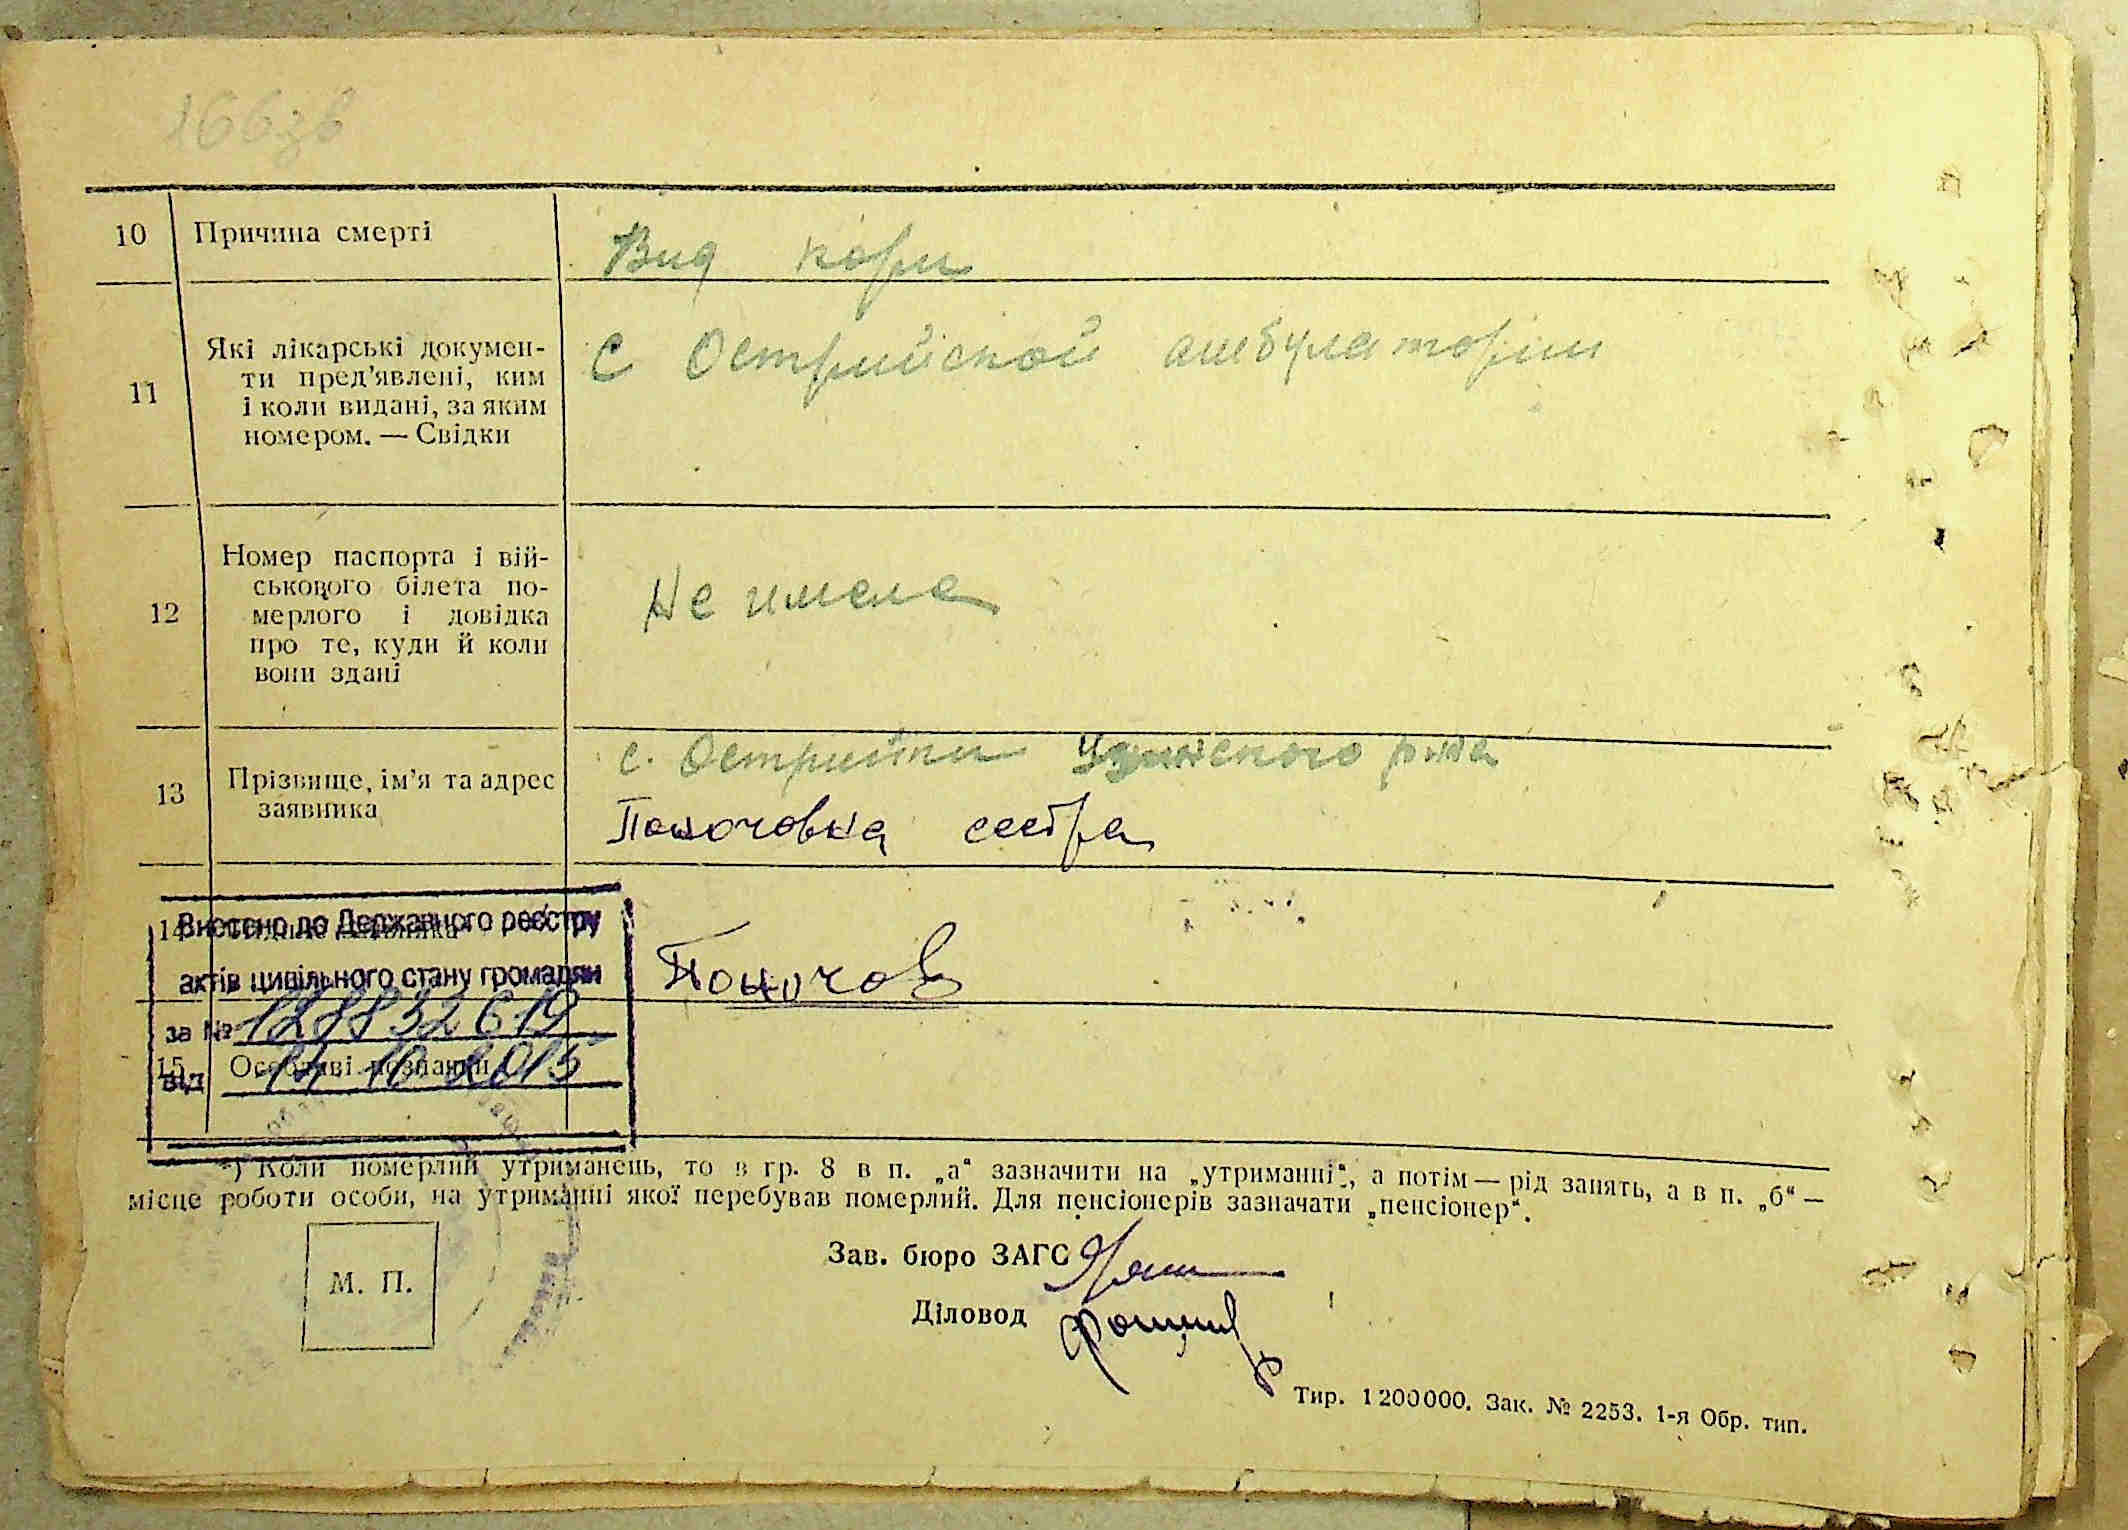 166зв
10 Причина смерті
Вид кори
11 Які лікарські докумен-
ти пред'явлені, ким
і коли видані, за яким
номером. — Свідки
С Острийской амбулатории
12 Номер паспорта і вій-
ськового білета по-
мерлого і довідка
про те, куди й коли
вони здані
Не имела
13 Прізвище, ім'я та адрес
заявника
с. Острийки Узинского р-на
сестра
14
Внесено до Державного реєстру
актів цивільного стану громадян
за № 128832619
15 Особливі познаки
від 14 10 2015
*) Коли померлий утриманець, то в гр. 8 в п. „а“ зазначити на „утриманні“, а потім — рід занять, а в п. „б“ —
місце роботи особи, на утриманні якої перебував померлий. Для пенсіонерів зазначати „пенсіонер“.
М. П.
Зав. бюро ЗАГС
Діловод
Тир. 1200000. Зак. № 2253. 1-я Обр. тип.